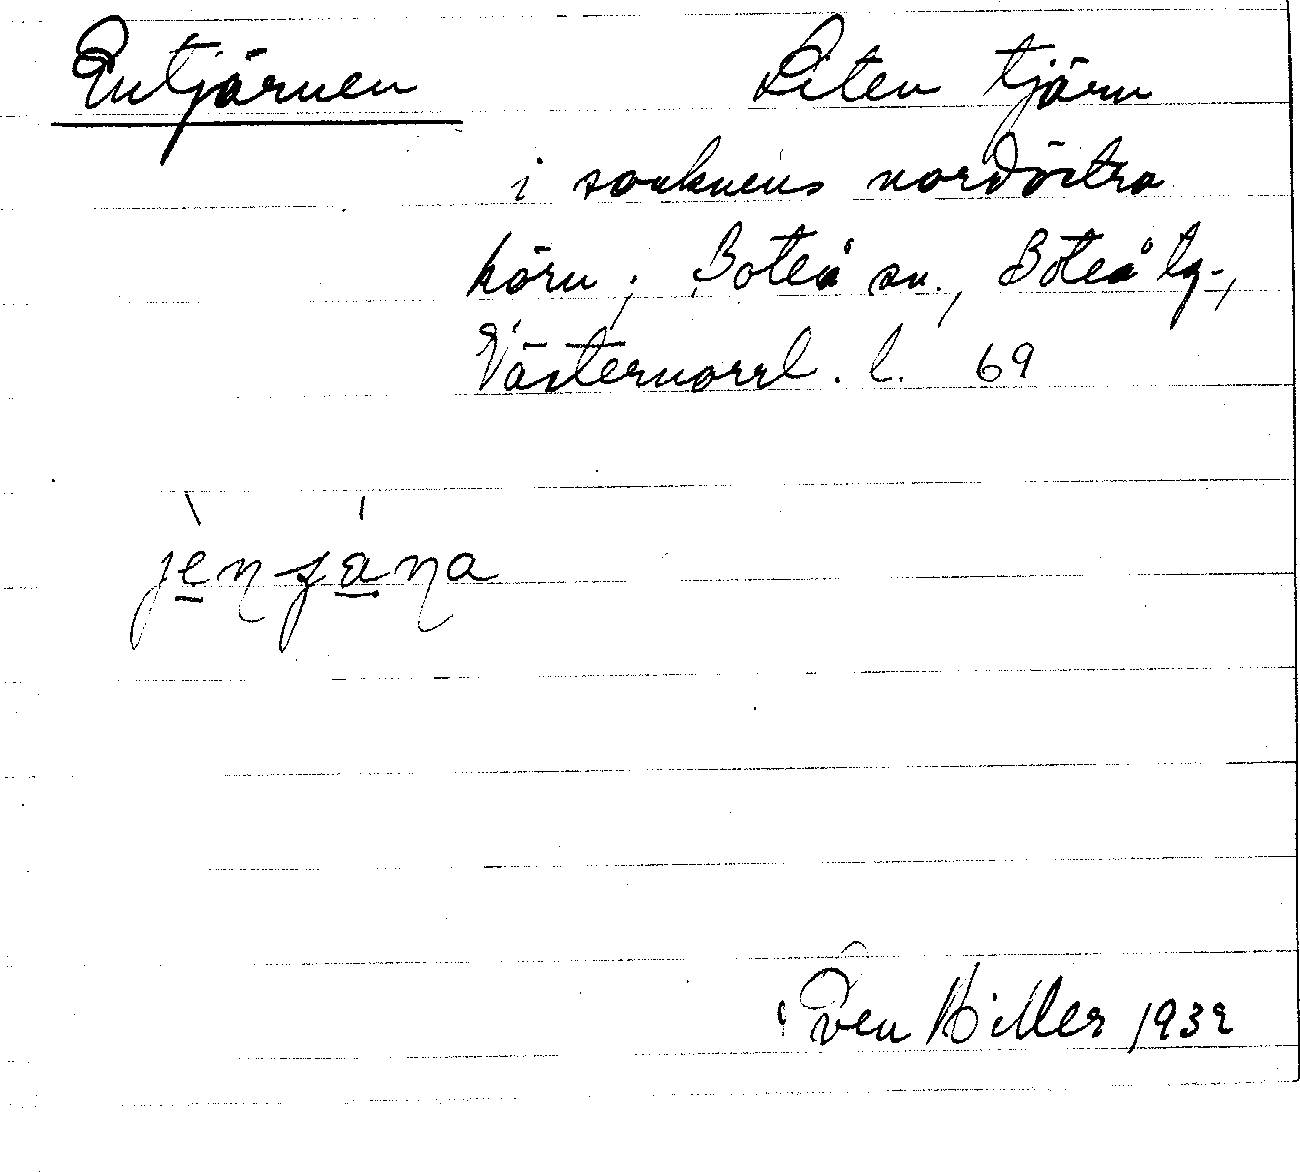 Entjärnen Liten tjärn
i socknens nordöstra
hörn; Boteå sn., Boteå tg.,
Västernorrl. l. 69
Sven Hiller 1932